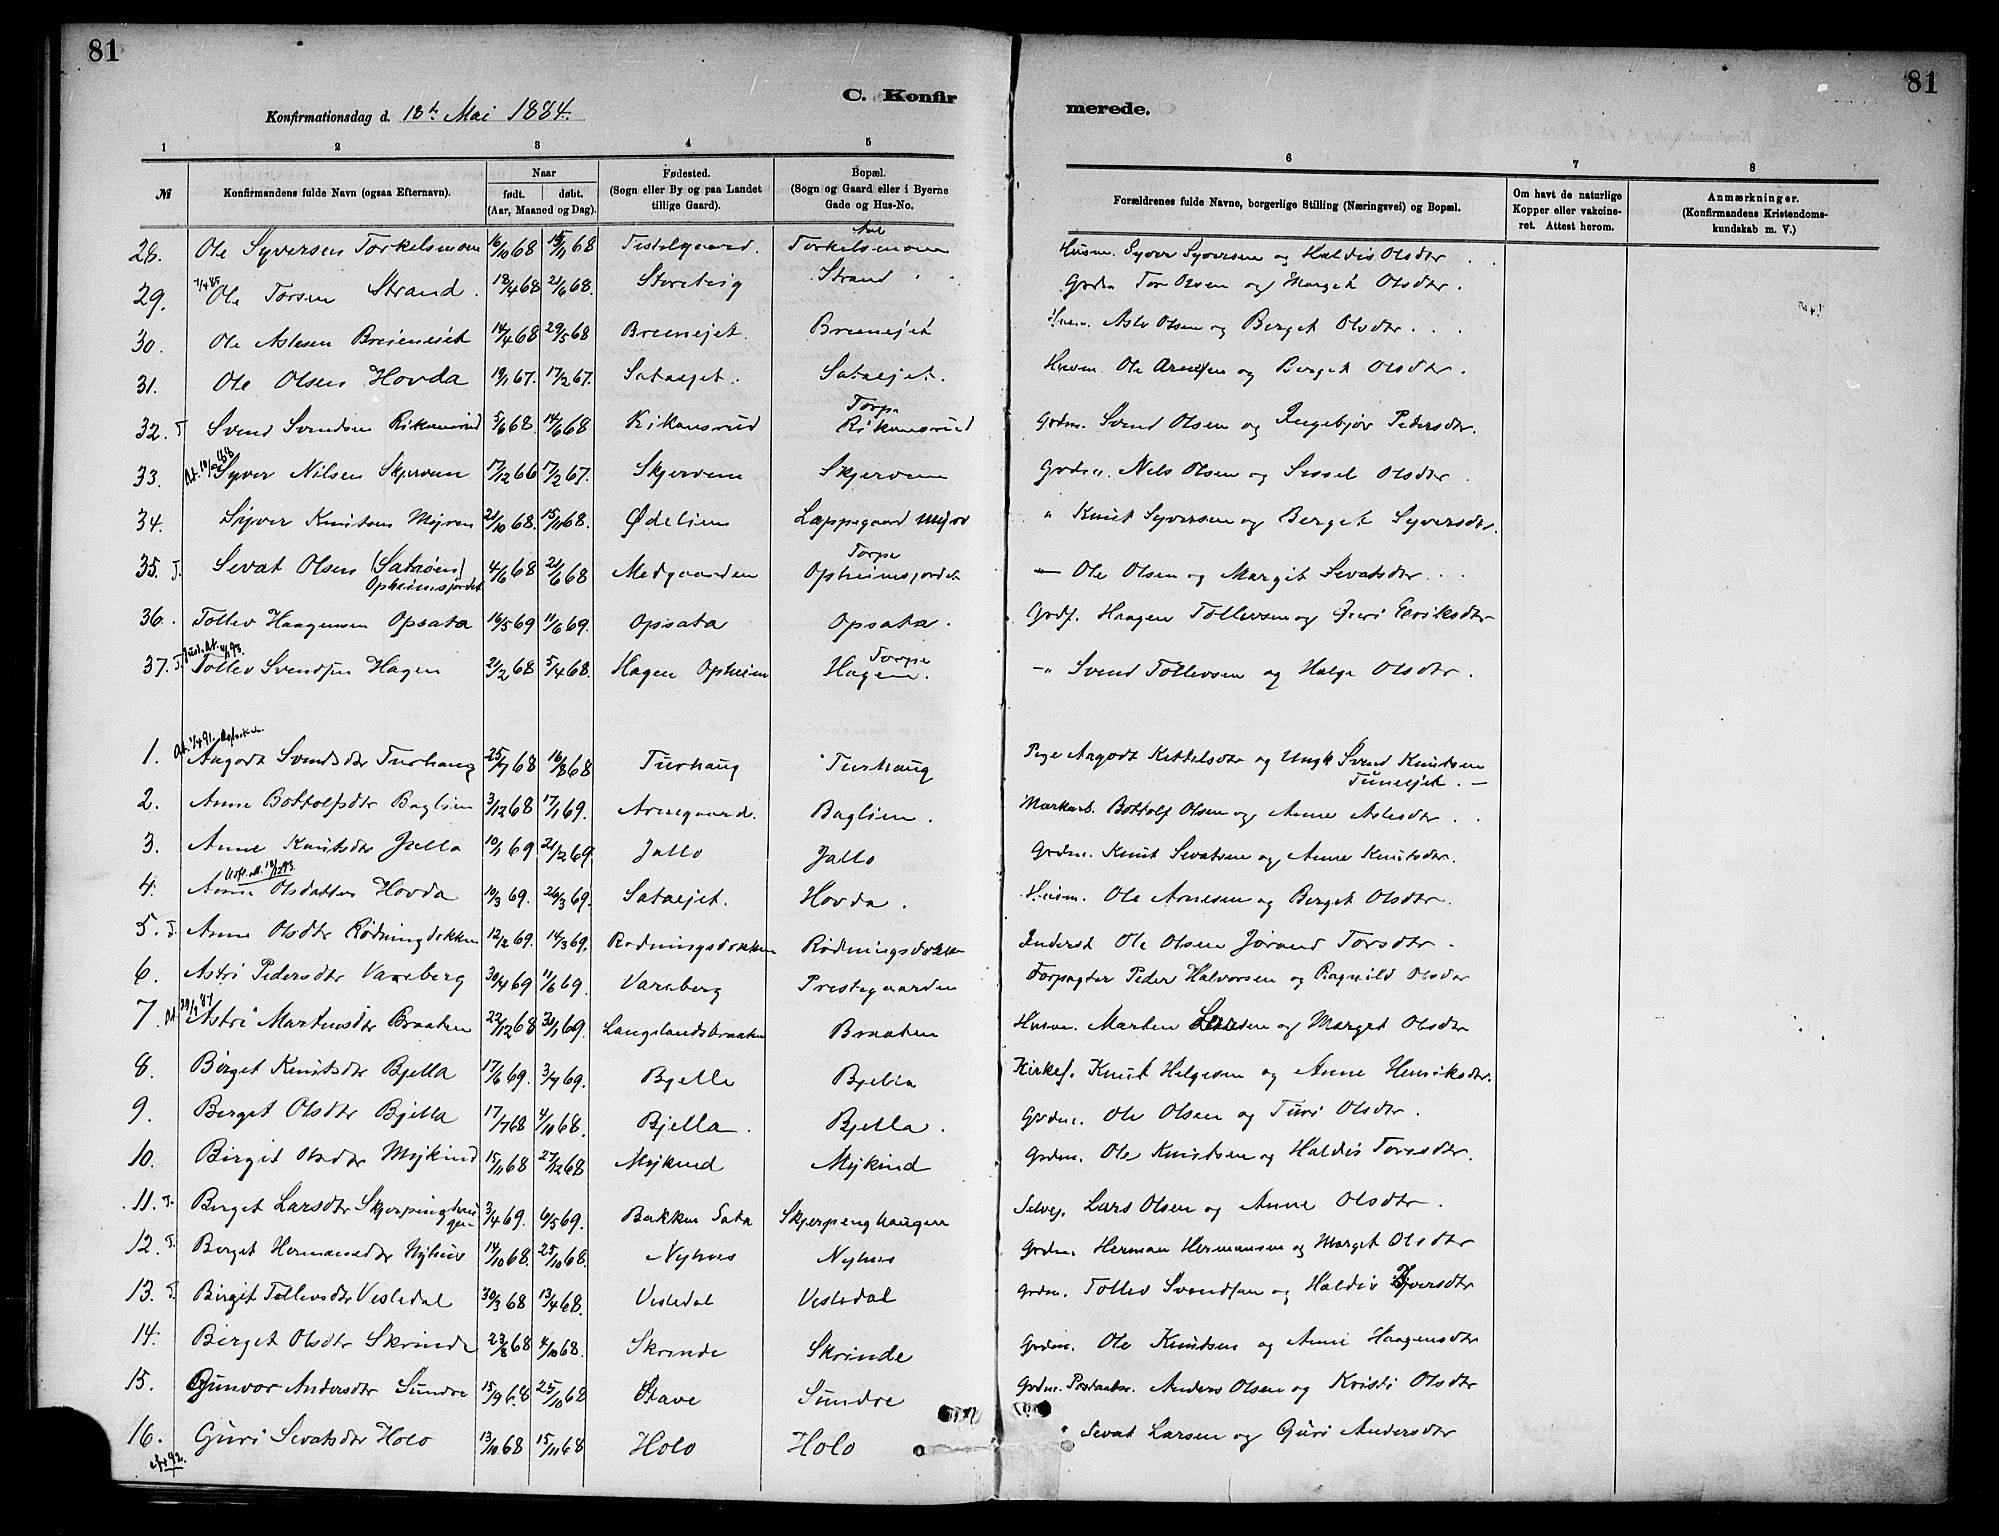 81
81
C. Konfir
merede.
Konfirmationsdag d. 18de Mai 1884.
1 2 3 4 5 6 7 8
№ Konfirmandens fulde Navn (ogsaa Efternavn). Naar født. døbt. (Aar, Maaned og Dag). Fødested. (Sogn eller By og paa Landet tillige Gaard). Bopæl. (Sogn og Gaard eller i Byerne Gade og Hus-No. Forældrenes fulde Navne, borgerlige Stilling (Næringsvei) og Bopæl. Om havt de naturlige Kopper eller vakcineret. Attest herom. Anmærkninger. (Konfirmandens Kristendomskundskab m. V.)
28. Ole Syversen Torkelsmoen 16/10 68 15/11 68 Tistelgaard. Aal Torkelsmoen Husm. Syver Syversen og Haldis Olsdtr
29. Ole Torsen Strand. 18/4 68 21/6 68. Storeteig Strand Grdm Tor Olsen og Marget Olsdtr.
30. Ole Aslesen Breieneiet 14/4 68 29/5 68 Breenejet. Breenejet Husm. Asle Olsen og Berget Olsdtr.
31. Ole Olsen Hovda 19/1 67. 17/2 67. Sataejet. Sataejet. Husm Ole Arnesen og Berget Olsdtr.
32. T. Svend Svendsen Rikansrud 5/6 68. 14/6 68 Rikansrud Torpe Rikansrud Grdm. Svend Olsen og Ingebjør Pedersdtr.
33. Syver Nilsen Skjervem 17/12 66 17/2 67. Skjervem Skjervem Grdm. Nels Olsen og Sissel Olsdtr
34. Syver Knutsen Myren 21/10 68. 15/11 68. Ødelien Læppegaard Myr " Knut Syversen og Berget Syversdtr.
35. T. Sevat Olsen (Satrøen) Opheimsjordet 4/6 68 21/6 68 Medgaarden Torpe Opheimsjordet — Ole Olsen og Margit Sevatsdtr.
36. Tollev Haagensen Opsata 16/5 69 11/6 69. Opsata Opsata. Grdf. Haagen Tollevsen og Guri Eeriksdtr
37. T. Tollev Svendsen Hagen 21/2 68 5/4 68. Hagen Opheim Torpe Hagen. —" Svend Tollevsen og Helge Olsdtr.
1. Aagodt Svendsdtr Turhaug 25/7 68 16/8 68 Turhaug Turhaug Pige Aagodt Kittelsdtr og Ungk Svend Knutsen Tuneejet.
2. Anne Bottolfsdtr Baglien 3/12 68 17/1 69. Arnegaard. Baglien. Markarb. Bottolf Olsen og Anne Aslesdtr.
3. Anne Knutsdtr Jello 10/1 69 21/2 69. Jallo Jallo Grdm. Knut Sevatsen og Anne Knutsdtr.
4. Anne Olsdatter Hovda 10/3 69. 26/3 69. Sataejet. Hovda. Husm. Ole Arnesen og Berget Olsdtr.
5. T. Anne Olsdtr Rødningdokken 12/2 69. 14/3 69. Rødningsdokken Rødningsdokken Inderst Ole Olsen Jørand Torsdtr
6. Astri Pedersdtr Vareberg 30/4 69 11/6 69. Vareberg Prestegaarden Forpagter Peder Halvorsen og Ragnild Olsdtr
7. Astri Martinsdtr Braaten 22/12 68 31/1 69. Langelandsbraaten Braaten Husm. Marten Larsen og Marget Olsdtr
8. Birget Knutsdtr Bjella 17/6 69. 3/7 69. Bjella Bjella Kirkes. Knut Helgesen og Anne Henriksdtr.
9. Berget Olsdtr Bjella 17/7 68 4/10 68. Bjella. Bjella. Grdm. Ole Olsen og Turi Olsdtr.
10. Birgit Olsdtr Myking 15/11 68 27/12 68 Mykind Mykind Grdm. Ole Knutsen og Haldis Torsdtr.
11. T. Birget Larsdtr Skjerpinghaugen 3/4 69. 6/5 69. Bakken Sata Skjerpenghaugen Selvej. Lars Olsen og Anne Olsdtr.
12. T. Berget Hermansdtr Nyhus 14/10 68. 25/10 68. Nyhus Nyhus Grdm. Herman Hermansen og Marget Olsdtr
13. T. Birgit Tollevsdtr Vesledal 30/3 68 13/4 68. Vesledal Vesledal Grdm. Tollev Svendsen og Haldis Syversdtr
14. Birget Olsdtr Skrinde 23/8 68 4/10 68. Skrinde Skrinde Grdm. Ole Knudsen og Anne Haagensdtr
15. Gunvor Andersdtr Sundre 15/9 68 25/10 68 Stave Sundre Grdm. Anders Olsen og Kristi Olsdtr
16. Guri Sevatsdtr Holo 13/10 68 15/11 68 Holo Holo " Sevat Larsen og Guri Andersdtr